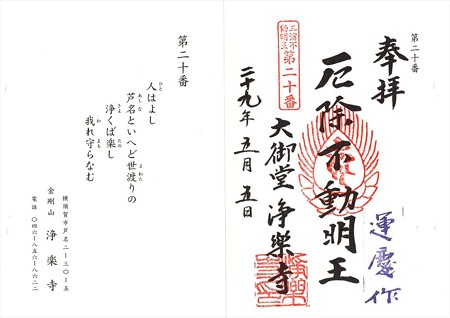 第二十番
奉拝
厄除不動明王
運慶作
三浦不動明王
第二十番
大御堂 浄楽寺
二十九年五月五日
第二十番
人はよし
芦名といへど世渡りの
浄くば楽し
我れ守らなむ
横須賀市芦名二-三〇-五
金剛山 浄楽寺
電話 〇四六-八五六-八六二二